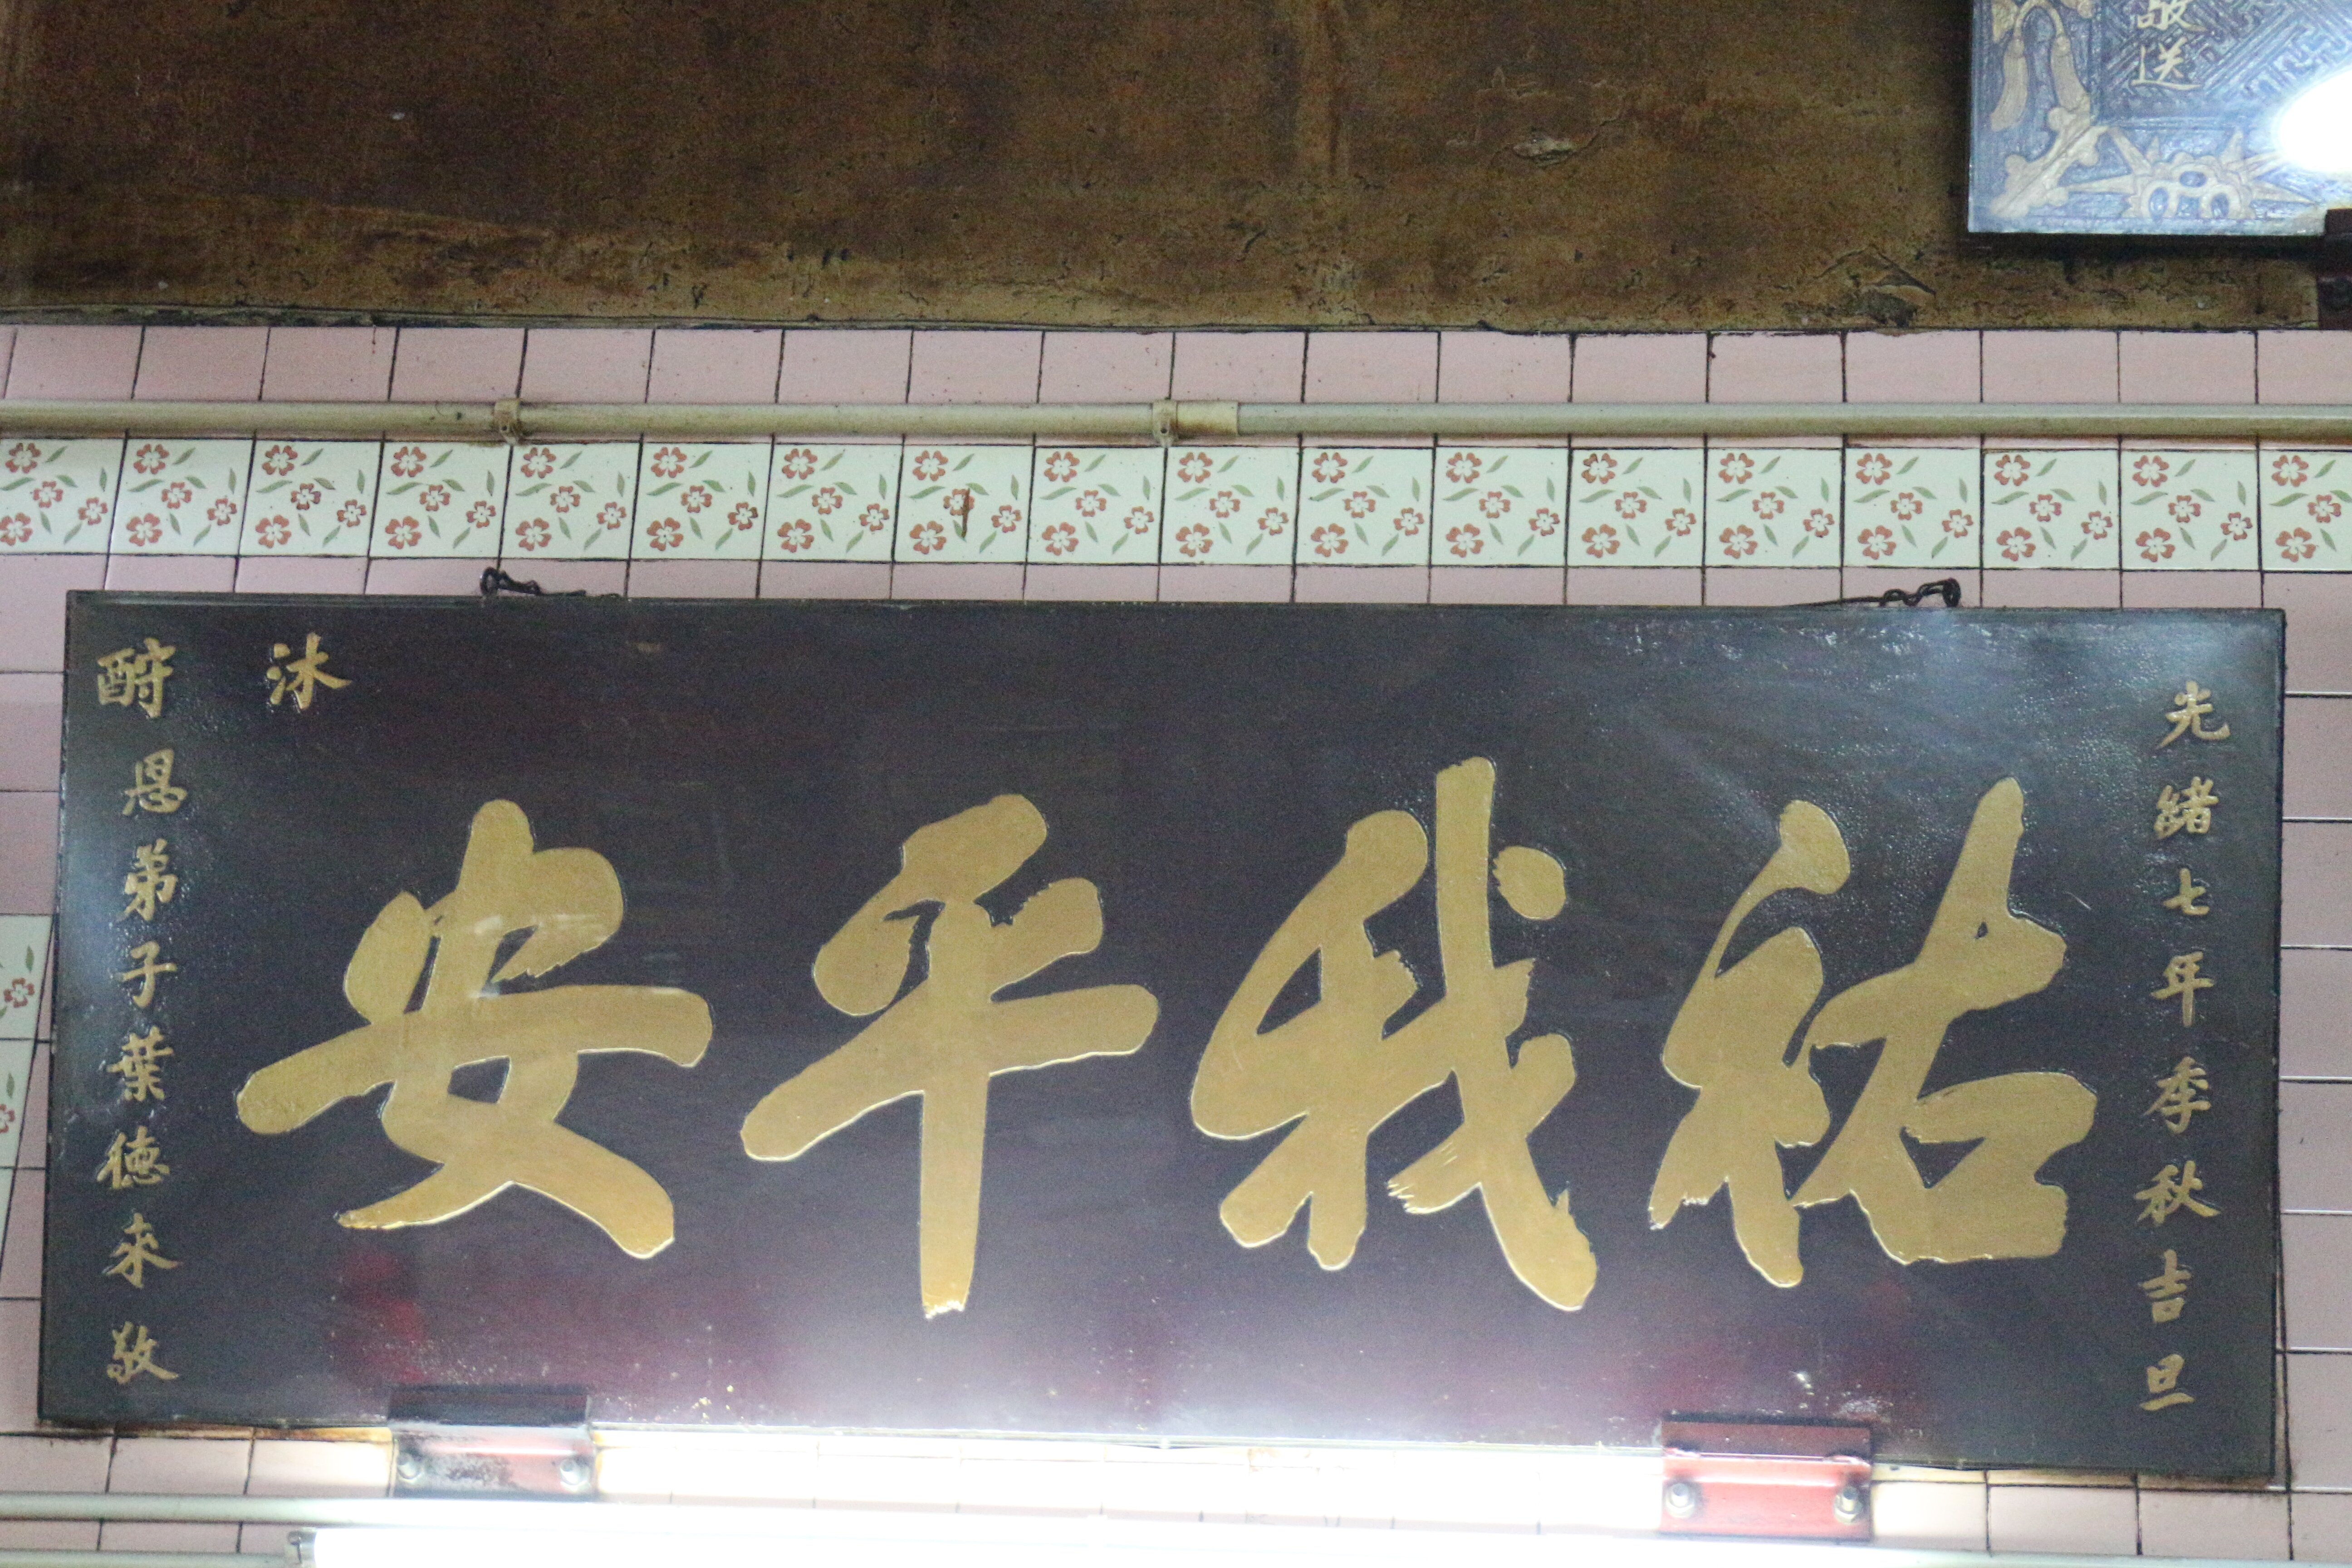 敬送
光緒七年季秋吉旦
祐我平安
沐
恩弟子葉德來敬
酧